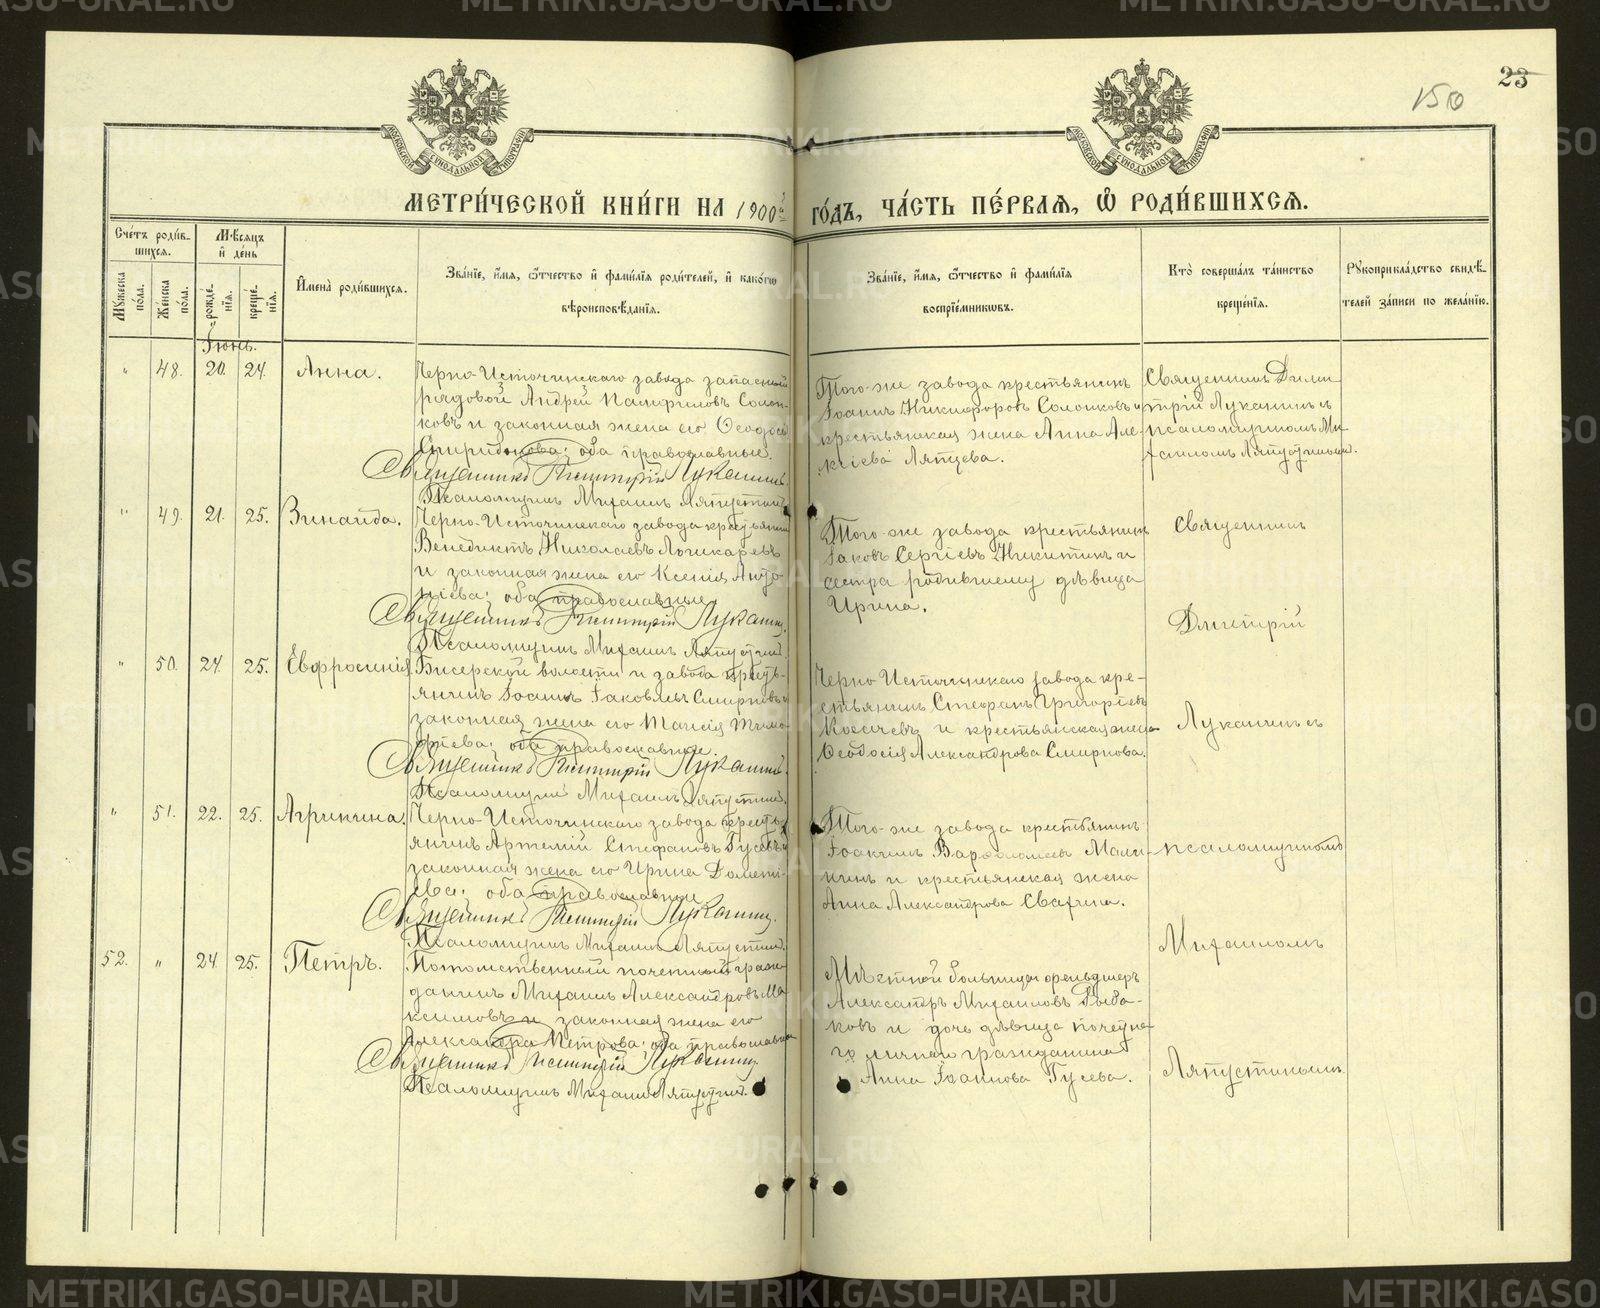 23
150
МЕТРИ́ЧЕСКОЙ КНИ́ГИ НА 1900й ГО́ДЪ, ЧА́СТЬ ПЕ́РВАѦ, Ѽ РОДИ́ВШИХСѦ.
Сче́тъ роди́в-
шихсѧ.
Мѣ́сѧцъ
и҆ де́нь
Мꙋжеска
по́ла.
Же́нска
по́ла.
рожде-
нїѧ.
креще́-
нїѧ.
И҆мена̀ роди́вшихсѧ.
Зва́нїе, и҆́мѧ, ѻ҆́тчество и҆ фами́лїѧ роди́телей, и҆ како́гѡ
вѣроисповѣ́данїѧ.
Зва́нїе, и҆́мѧ, ѻ҆́тчество и҆ фами́лїѧ
воспрїе́мникѡвъ.
Кто̀ соверша́лъ та́инство
креще́нїѧ.
Рꙋкоприкла́дство свидѣ́-
телей за́писи по жела́нїю.
Іюнь.
" 48. 20. 24. Анна.
Черно-Источинскаго завода запасный
рядовой Андрей Памфиловъ Солон-
ковъ и законная жена его Ѳеодосія
Спиридонова; оба православные.
Священникъ Димитрій Луканинъ.
Псаломщикъ Михаилъ Ляпустинъ
Того-же завода крестьянинъ
Іоаннъ Никифоровъ Солонковъ и
крестьянская жена Анна Але-
ксіева Ляпцева.
Священникъ Дими-
трій Луканинъ съ
псаломщикомъ Ми-
хаиломъ Ляпустинымъ.
" 49. 21. 25. Зинаида.
Черно-Источинскаго завода крестьянинъ
Венедиктъ Николаевъ Логинаревъ
и законная жена его Ксенія Анто-
ніева; оба православные.
Священникъ Димитрій Луканинъ.
Псаломщикъ Михаилъ Ляпустинъ
Того-же завода крестьянинъ
Іаковъ Сергіевъ Никитинъ и
сестра родившему дѣвица
Ирина.
Священникъ
Дмитрій
" 50. 24. 25. Евфросинія.
Бисерской волости и завода кресть-
янинъ Іоаннъ Іаковлевъ Смирновъ и
законная жена его Таисія Тимо-
фіева; оба православные.
Священникъ Димитрій Луканинъ.
Псаломщикъ Михаилъ Ляпустинъ.
Черно-Источинскаго завода кре-
стьянинъ Стефанъ Григоріевъ
Косачевъ и крестьянская жена
Ѳеодосія Александрова Смирнова.
Луканинъ съ
" 51. 22. 25. Агрипина.
Черно-Источинскаго завода кресть-
янинъ Артемій Стефановъ Гусевъ и
законная жена его Ирина Домети-
ева; оба православные.
Священникъ Димитрій Луканинъ.
Псаломщикъ Михаилъ Ляпустинъ.
Того-же завода крестьянинъ
Іоакимъ Варѳоломеевъ Мали-
нинъ и крестьянская жена
Анна Александрова Свахина.
псаломщикомъ
Михаиломъ
52. " 24. 25. Петръ.
Потомственный почетный граж-
данинъ Михаилъ Александровъ Ма-
ксимовъ и законная жена его
Александра Петрова; оба православные
Священникъ Димитрій Луканинъ
Псаломщикъ Михаилъ Ляпустинъ.
Мѣстной больницы фельдшеръ
Александръ Михаиловъ Рыба-
ковъ и дочь дѣвица почетна-
го личнаго гражданина
Анна Іоаннова Гусева.
Ляпустинымъ.